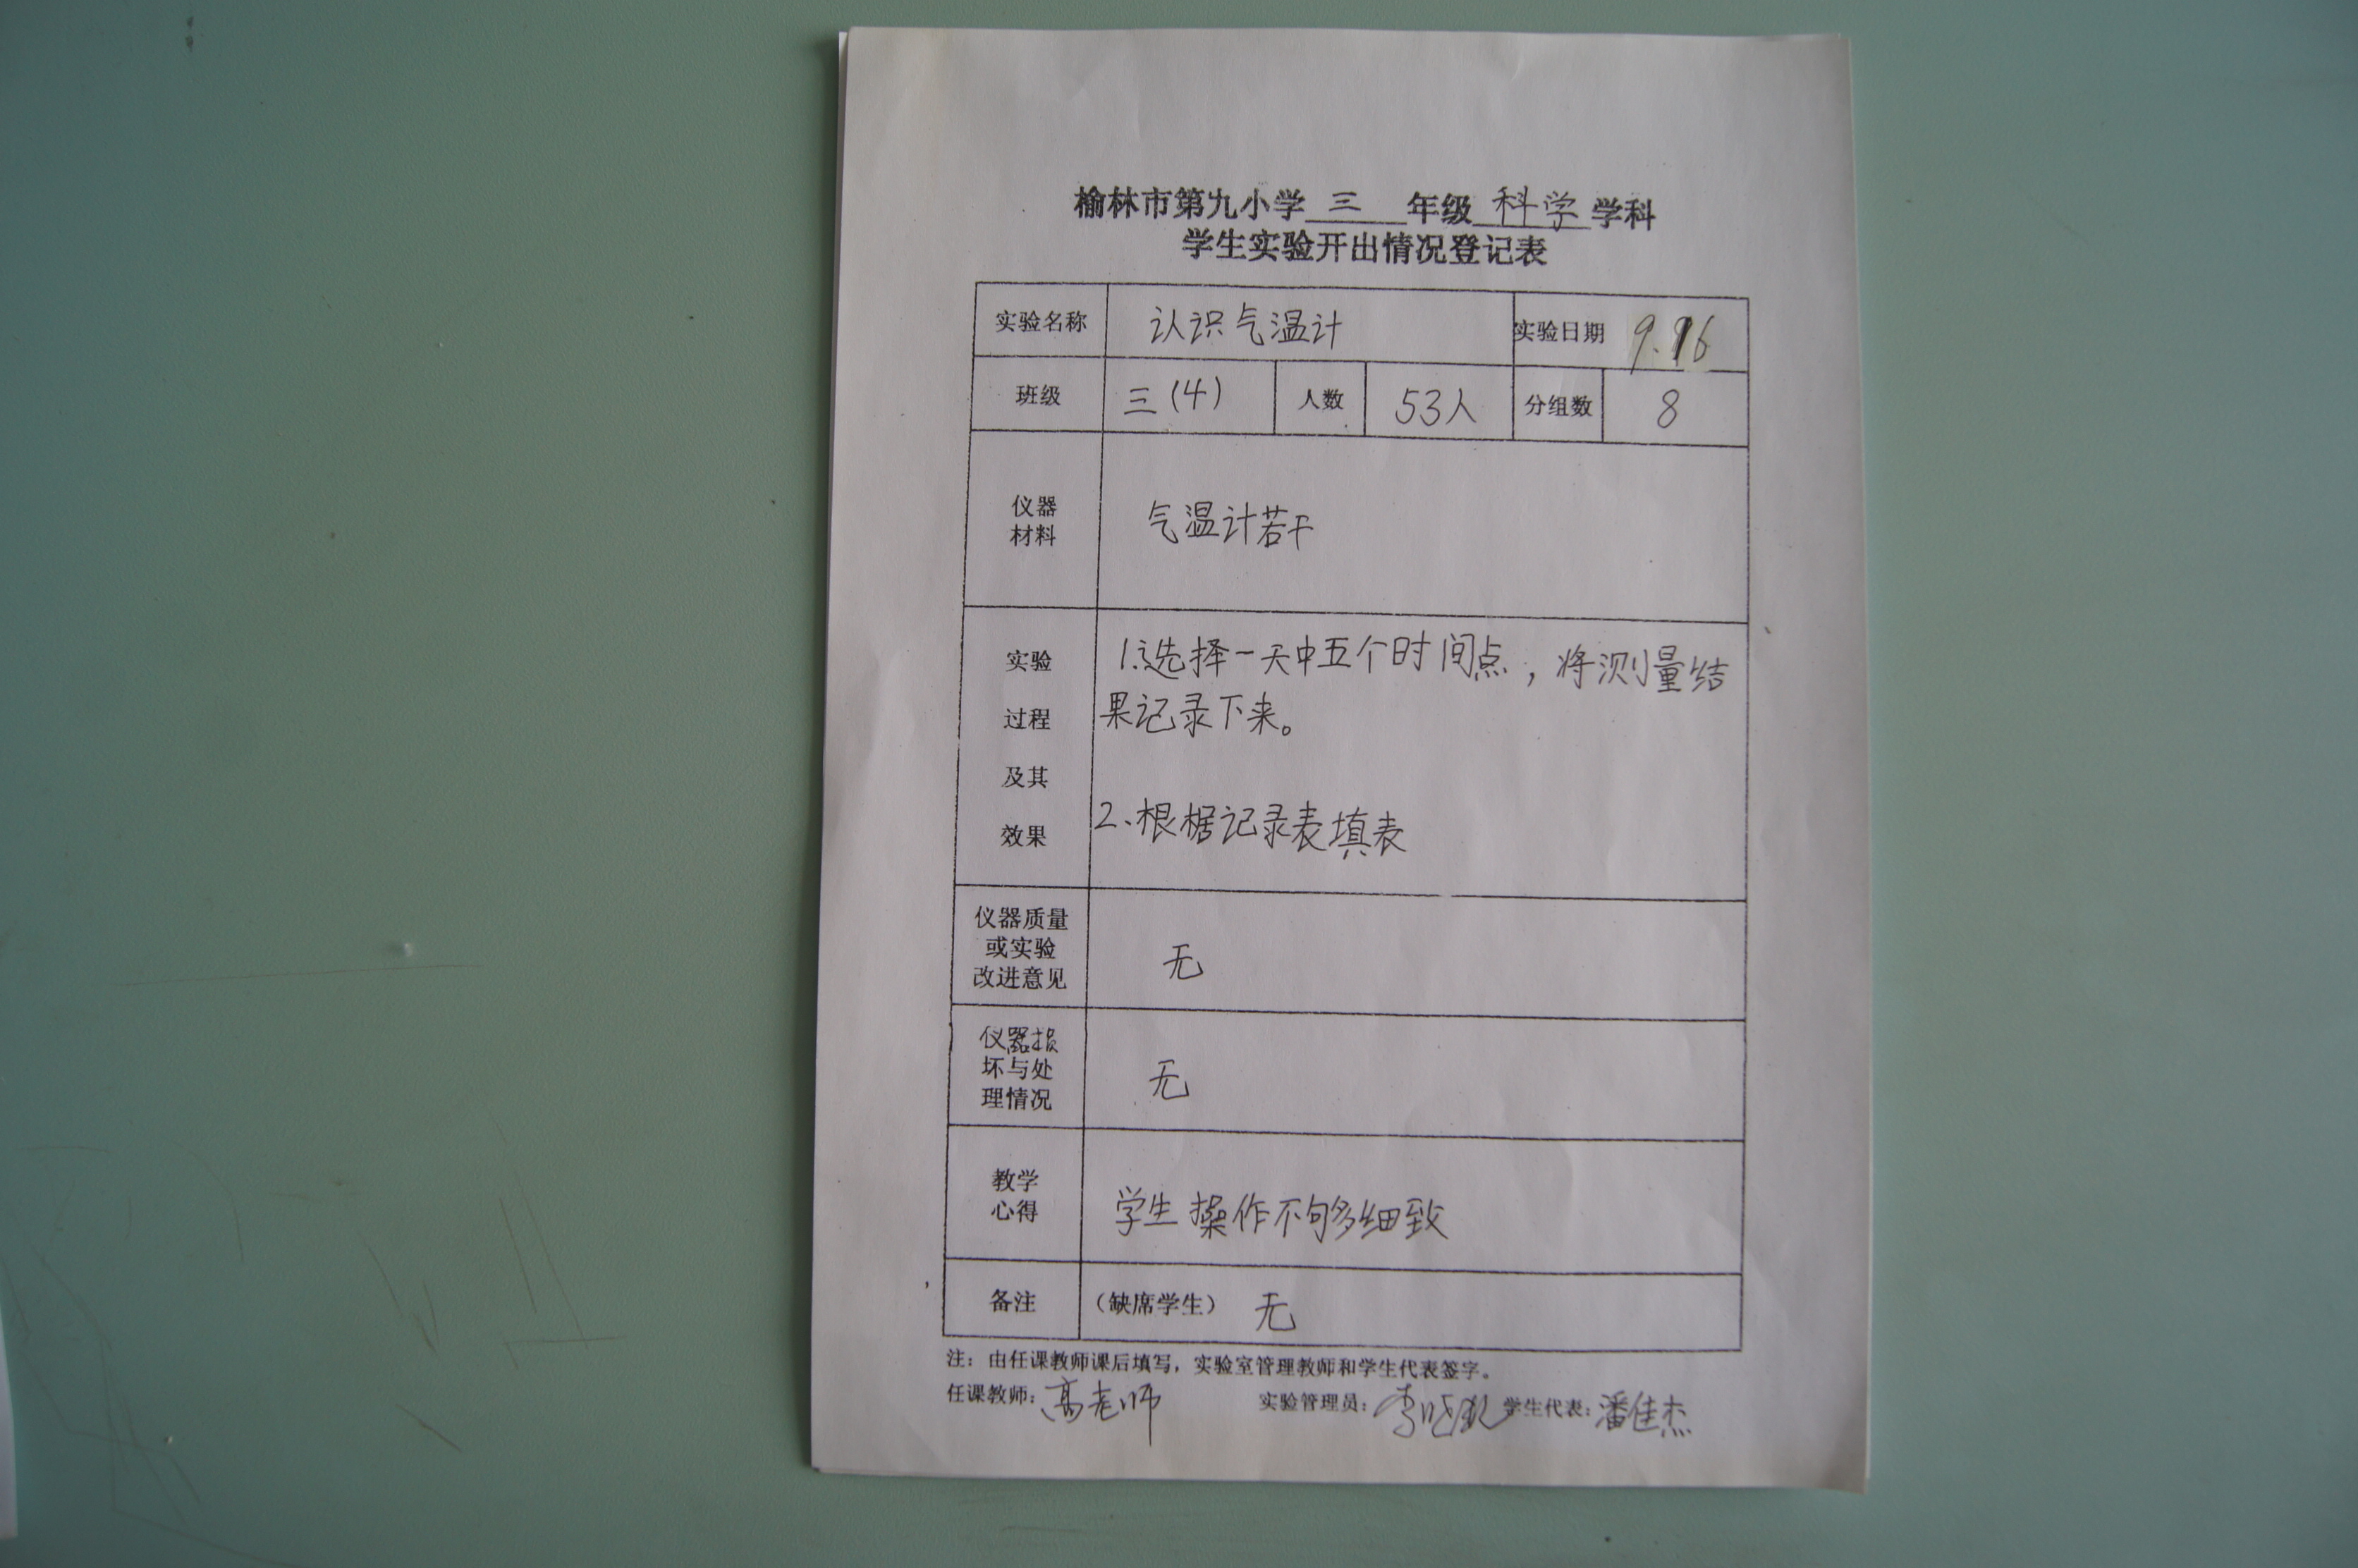 榆林市第九小学 三 年级 科学 学科
学生实验开出情况登记表
实验名称 认识气温计 实验日期 9.16
班级 三(4) 人数 53人 分组数 8
仪器
材料
气温计若干
实验
过程
及其
效果
1.选择一天中五个时间点，将测量结
果记录下来。
2、根据记录表填表
仪器质量
或实验
改进意见
无
仪器损
坏与处
理情况
无
教学
心得
学生操作不够细致
备注 （缺席学生） 无
注：由任课教师课后填写，实验室管理教师和学生代表签字。
任课教师：高老师 实验管理员： 学生代表：潘佳杰